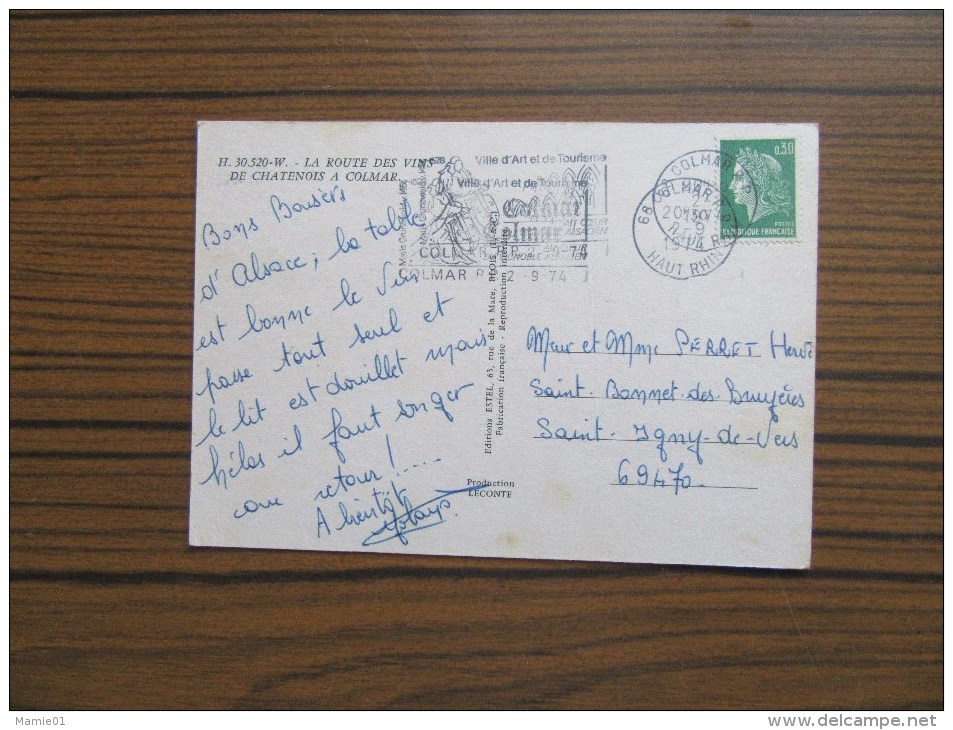 H. 30.520-W. - LA ROUTE DES VINS
DE CHATENOIS A COLMAR.
Bons Baisers
d'Alsace; la table
est bonne le Vin
passe tout seul et
le lit est douillet mais
hélas il faut songer
au retour!.....
A bientôt
Ville d'Art et de Tourisme
Ville d'Art et de Tourisme
Colmar
Colmar
COLMAR R.P.
COLMAR R.P. 2-9-74
68 COLMAR R.P.
HAUT RHIN
0,30
POSTES
REPUBLIQUE FRANCAISE
Editions ESTEL, 63, rue de la Mare, BLOIS
Fabrication française - Reproduction interdite
Production
LECONTE
Meur et Mme PERRET Hervé
Saint-Bonnet-des-Bruyéres
Saint-Igny-de-Vers
69470
Mamie01
www.delcampe.net